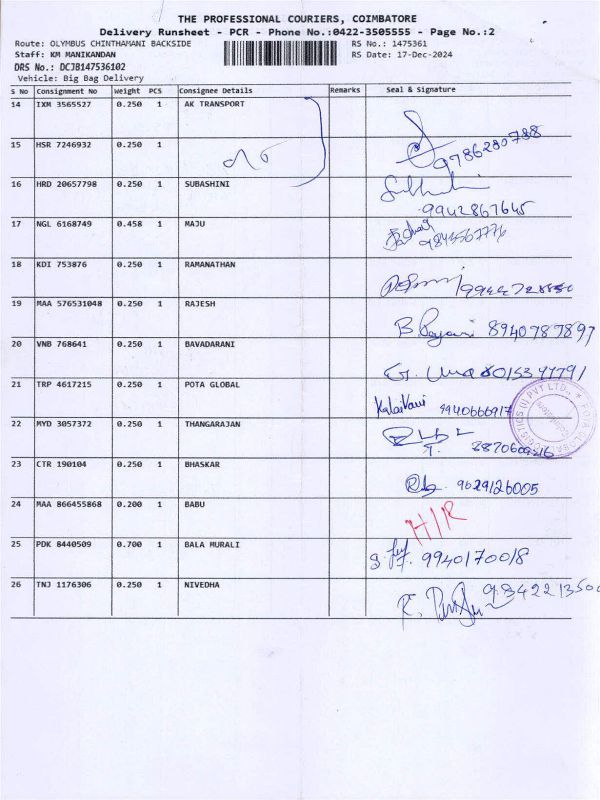 THE PROFESSIONAL COURIERS, COIMBATORE
Delivery Runsheet - PCR - Phone No.:0422-3505555 - Page No.:2
Route: OLYMBUS CHINTHAMANI BACKSIDE RS No.: 1475361
Staff: KM MANIKANDAN RS Date: 17-Dec-2024
DRS No.: DCJB147536102
Vehicle: Big Bag Delivery
S No Consignment No Weight PCS Consignee Details Remarks Seal & Signature
14 IXM 3565527 0.250 1 AK TRANSPORT
15 HSR 7246932 0.250 1 9786280788
16 HRD 20657798 0.250 1 SUBASHINI
9942867645
17 NGL 6168749 0.458 1 MAJU
18 KDI 753876 0.250 1 RAMANATHAN
19 MAA 576531048 0.250 1 RAJESH
8940787897
20 VNB 768641 0.250 1 BAVADARANI
G. Uma 8015397791
21 TRP 4617215 0.250 1 POTA GLOBAL
Kalaivani 9940666917
22 MYD 3057372 0.250 1 THANGARAJAN
23 CTR 190104 0.250 1 BHASKAR
9629126005
24 MAA 866455868 0.200 1 BABU
H/R
25 PDK 8440509 0.700 1 BALA MURALI
9940170018
26 TNJ 1176306 0.250 1 NIVEDHA